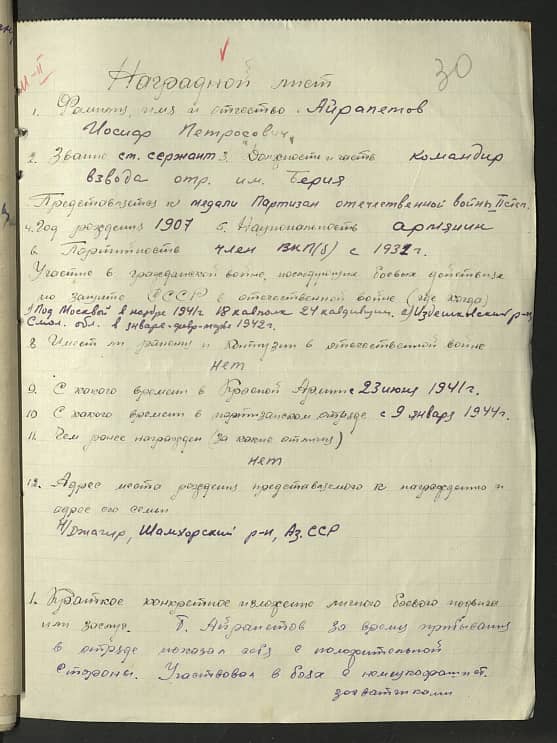 30
Наградной лист
1. Фамилия, имя и отчество Айрапетов
Иосиф Петросович
2. Звание ст. сержант 3. Должность и часть командир
взвода отр. им. Берия
Представляется к медали Партизан отечественной войны II степ.
4. Год рождения 1907 5. Национальность армянин
6. Партийность член ВКП(б) с 1932 г.
Участие в гражданской войне, последующих боевых действиях
по защите СССР и отечественной войне (где когда)
1) Под Москвой в ноябре 1941г 18 кавполк 24 кавдивизии. 2) Издешковский р-н
Смол. обл. в январе-февр-марте 1942г.
8. Имеет ли ранения и контузии в отечественной войне
нет
9. С какого времени в Красной Армии с 23 июня 1941г.
10 С какого времени в партизанском отряде с 9 января 1944г.
11. Чем ранее награжден (за какие отличия)
нет
12. Адрес места рождения представляемого к награждению и
адрес его семьи
Н/Джагир, Шамхорский р-н, Аз. ССР
1. Краткое конкретное изложение личного боевого подвига
или заслуг. Т. Айрапетов за время пребывания
в отряде показал себя с положительной
стороны. Участвовал в боях с немецкофашист.
захватчиками